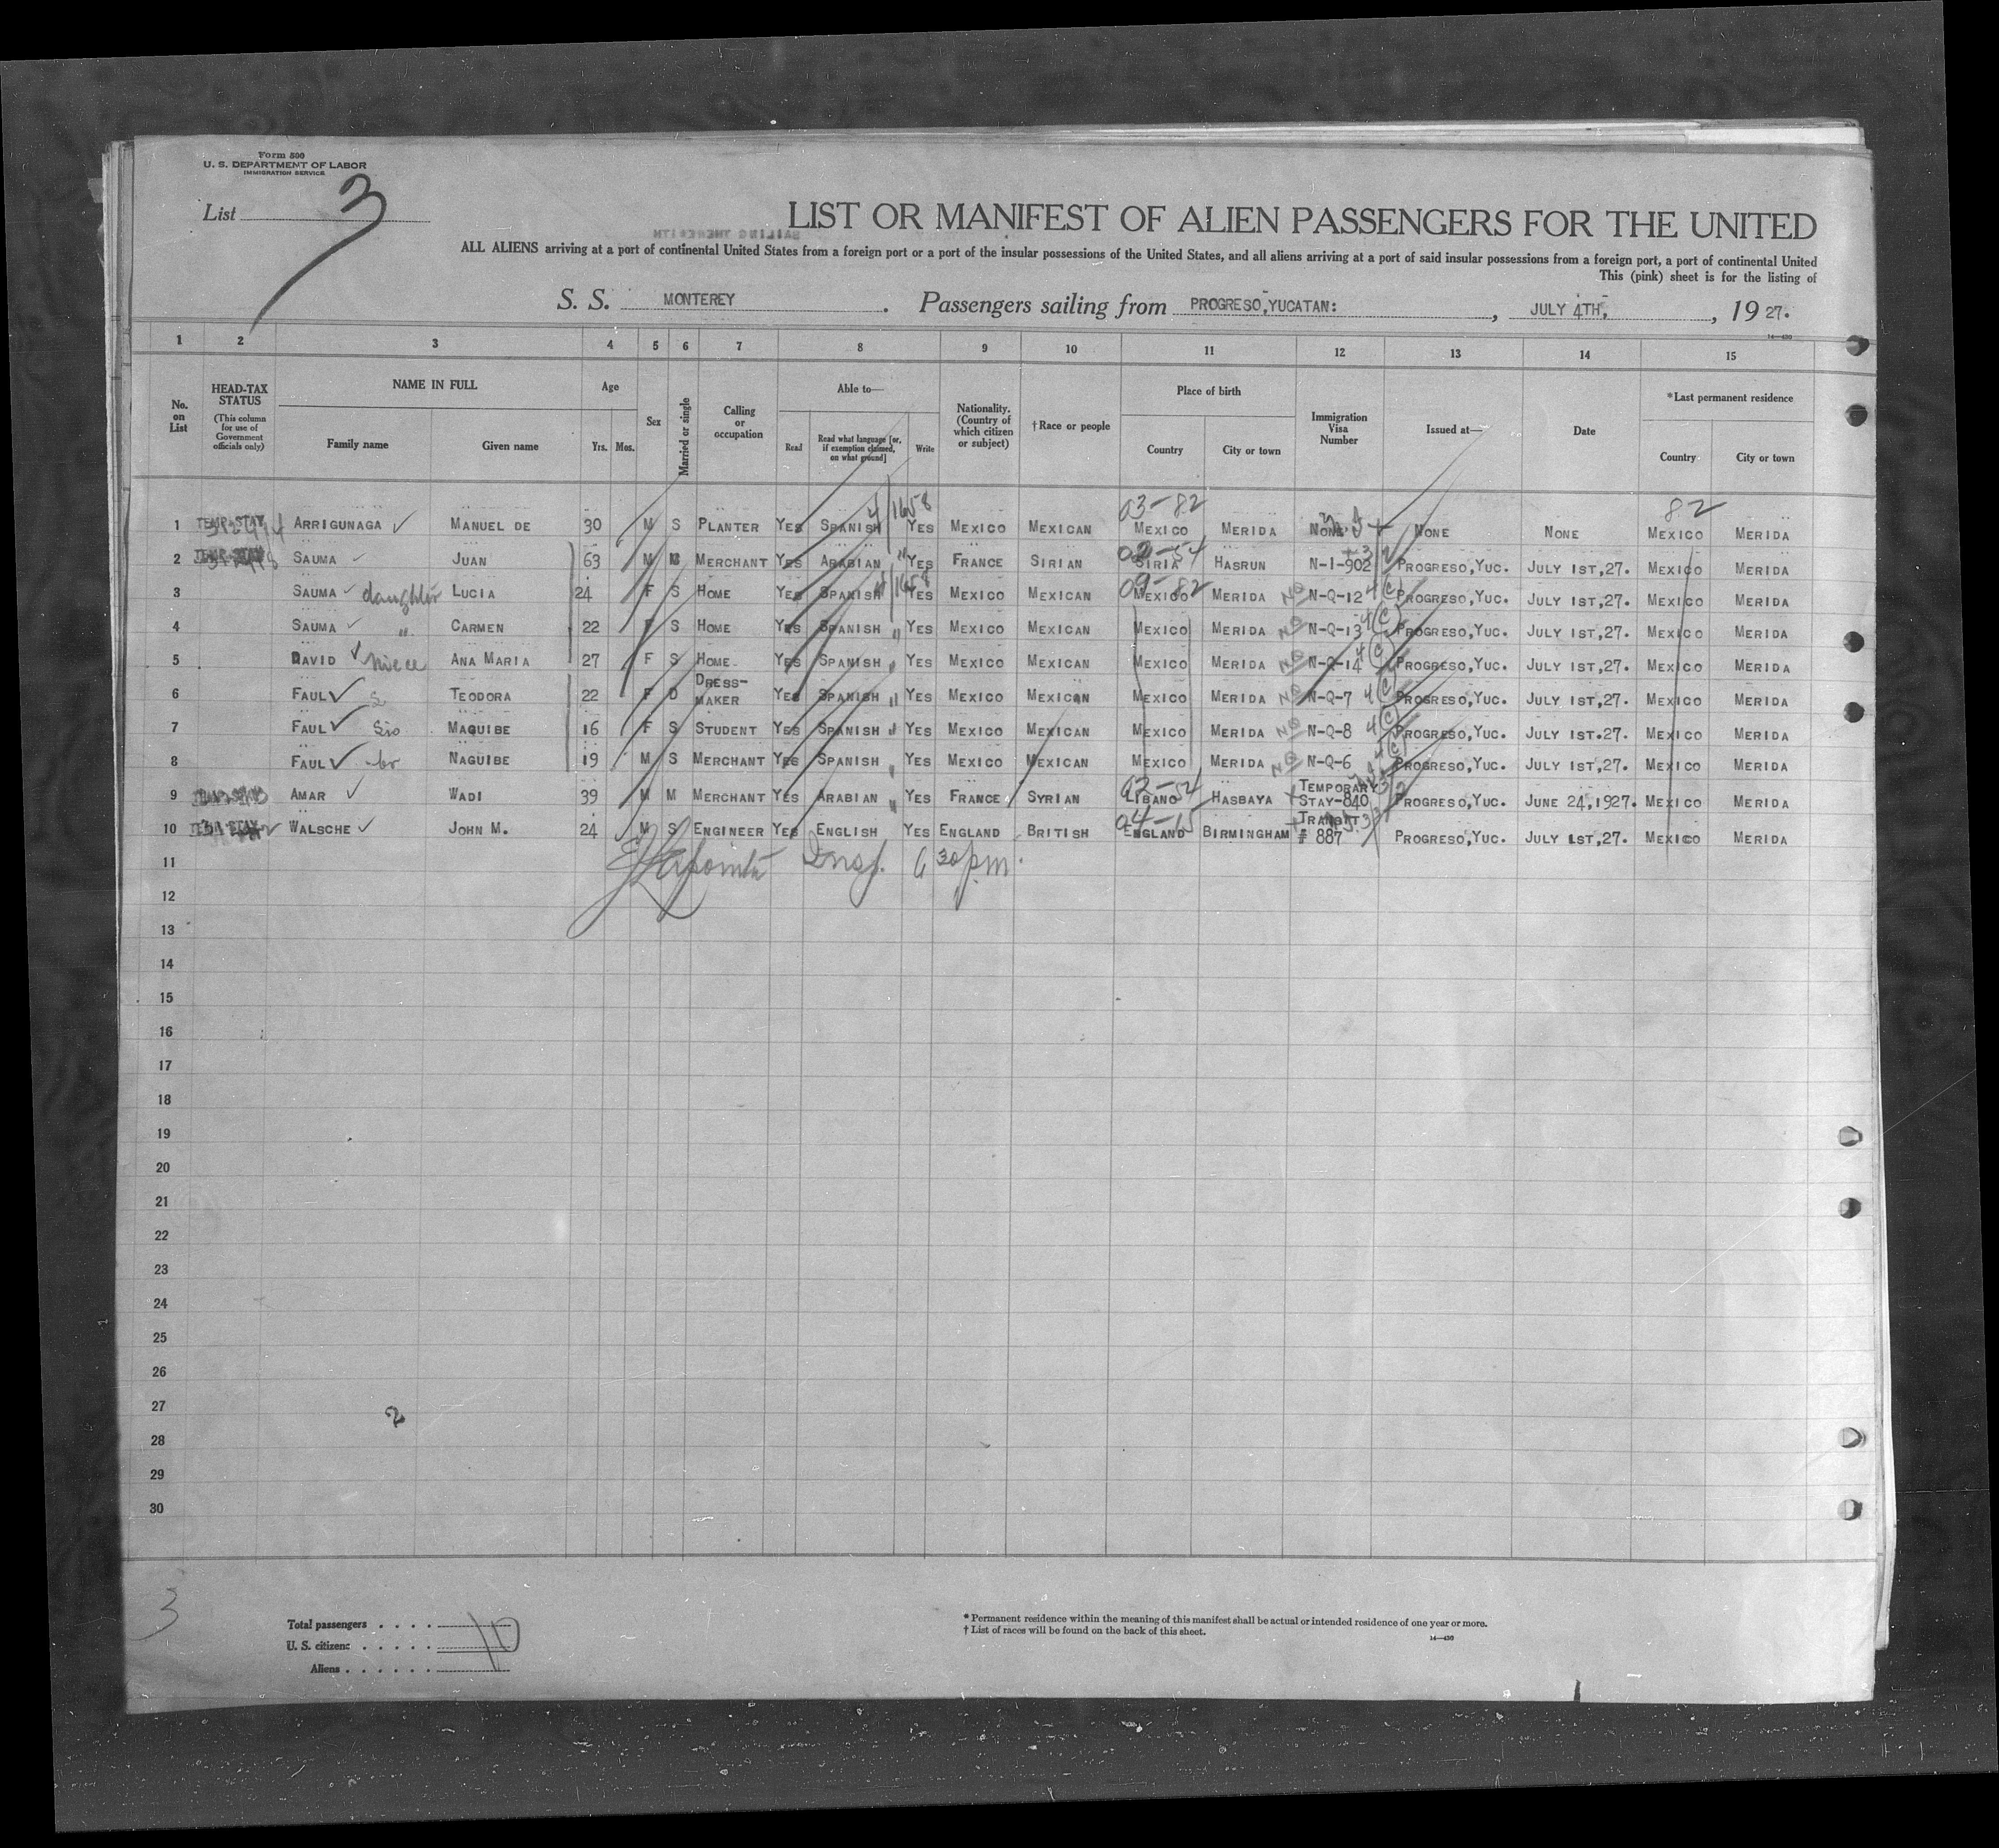 Form 500
U. S. DEPARTMENT OF LABOR
IMMIGRATION SERVICE
List 3
LIST OR MANIFEST OF ALIEN PASSENGERS FOR THE UNITED
SAILING THEREWITH
ALL ALIENS arriving at a port of continental United States from a foreign port or a port of the insular possessions of the United States, and all aliens arriving at a port of said insular possessions from a foreign port, a port of continental United
This (pink) sheet is for the listing of
S. S. MONTEREY. Passengers sailing from PROGRESO, YUCATAN: , JULY 4TH, , 19 27.
14—430
1 2 3 4 5 6 7 8 9 10 11 12 13 14 15
No. on List
HEAD-TAX STATUS (This column for use of Government officials only)
NAME IN FULL Family name Given name
Age Yrs. Mos.
Sex
Married or single
Calling or occupation
Able to— Read Read what language [or, if exemption claimed, on what ground] Write
Nationality. (Country of which citizen or subject)
†Race or people
Place of birth Country City or town
Immigration Visa Number
Issued at—
Date
*Last permanent residence Country City or town
03-82 82
1 TEMP-STAY ARRIGUNAGA ✓ MANUEL DE 30 M S PLANTER YES SPANISH YES MEXICO MEXICAN MEXICO MERIDA NONE NONE NONE MEXICO MERIDA
2 SAUMA ✓ JUAN 63 M MERCHANT YES ARABIAN " YES FRANCE SIRIAN SIRIA HASRUN N-1-902 PROGRESO, YUC. JULY 1ST, 27. MEXICO MERIDA
3 SAUMA ✓ daughter LUCIA 24 F S HOME YES SPANISH YES MEXICO MEXICAN MEXICO MERIDA NQ N-Q-12 4 (C) PROGRESO, YUC. JULY 1ST, 27. MEXICO MERIDA
4 SAUMA ✓ " CARMEN 22 F S HOME YES SPANISH " YES MEXICO MEXICAN MEXICO MERIDA NQ N-Q-13 4 (C) PROGRESO, YUC. JULY 1ST, 27. MEXICO MERIDA
5 DAVID ✓ niece ANA MARIA 27 F S HOME YES SPANISH " YES MEXICO MEXICAN MEXICO MERIDA NQ N-Q-14 4 (C) PROGRESO, YUC. JULY 1ST, 27. MEXICO MERIDA
6 FAUL ✓ TEODORA 22 F D DRESS-MAKER YES SPANISH " YES MEXICO MEXICAN MEXICO MERIDA NQ N-Q-7 4 (C) PROGRESO, YUC. JULY 1ST, 27. MEXICO MERIDA
7 FAUL ✓ Sis MAQUIBE 16 F S STUDENT YES SPANISH " YES MEXICO MEXICAN MEXICO MERIDA NQ N-Q-8 4 (C) PROGRESO, YUC. JULY 1ST.27. MEXICO MERIDA
8 FAUL ✓ br NAGUIBE 19 M S MERCHANT YES SPANISH " YES MEXICO MEXICAN MEXICO MERIDA NQ N-Q-6 4 (C) PROGRESO, YUC. JULY 1ST, 27. MEXICO MERIDA
9 AMAR ✓ WADI 39 M M MERCHANT YES ARABIAN " YES FRANCE SYRIAN LIBANO HASBAYA TEMPORARY STAY-840 PROGRESO, YUC. JUNE 24, 1927. MEXICO MERIDA
10 WALSCHE ✓ JOHN M. 24 M S ENGINEER YES ENGLISH YES ENGLAND BRITISH ENGLAND BIRMINGHAM TRANSIT # 887 PROGRESO, YUC. JULY 1ST, 27. MEXICO MERIDA
11 Insp. 6 30 pm.
12
13
14
15
16
17
18
19
20
21
22
23
24
25
26
27
28
29
30
2
3
Total passengers . . . .
U. S. citizens . . . . . 10
Aliens . . . . . .
* Permanent residence within the meaning of this manifest shall be actual or intended residence of one year or more.
† List of races will be found on the back of this sheet.
14—430